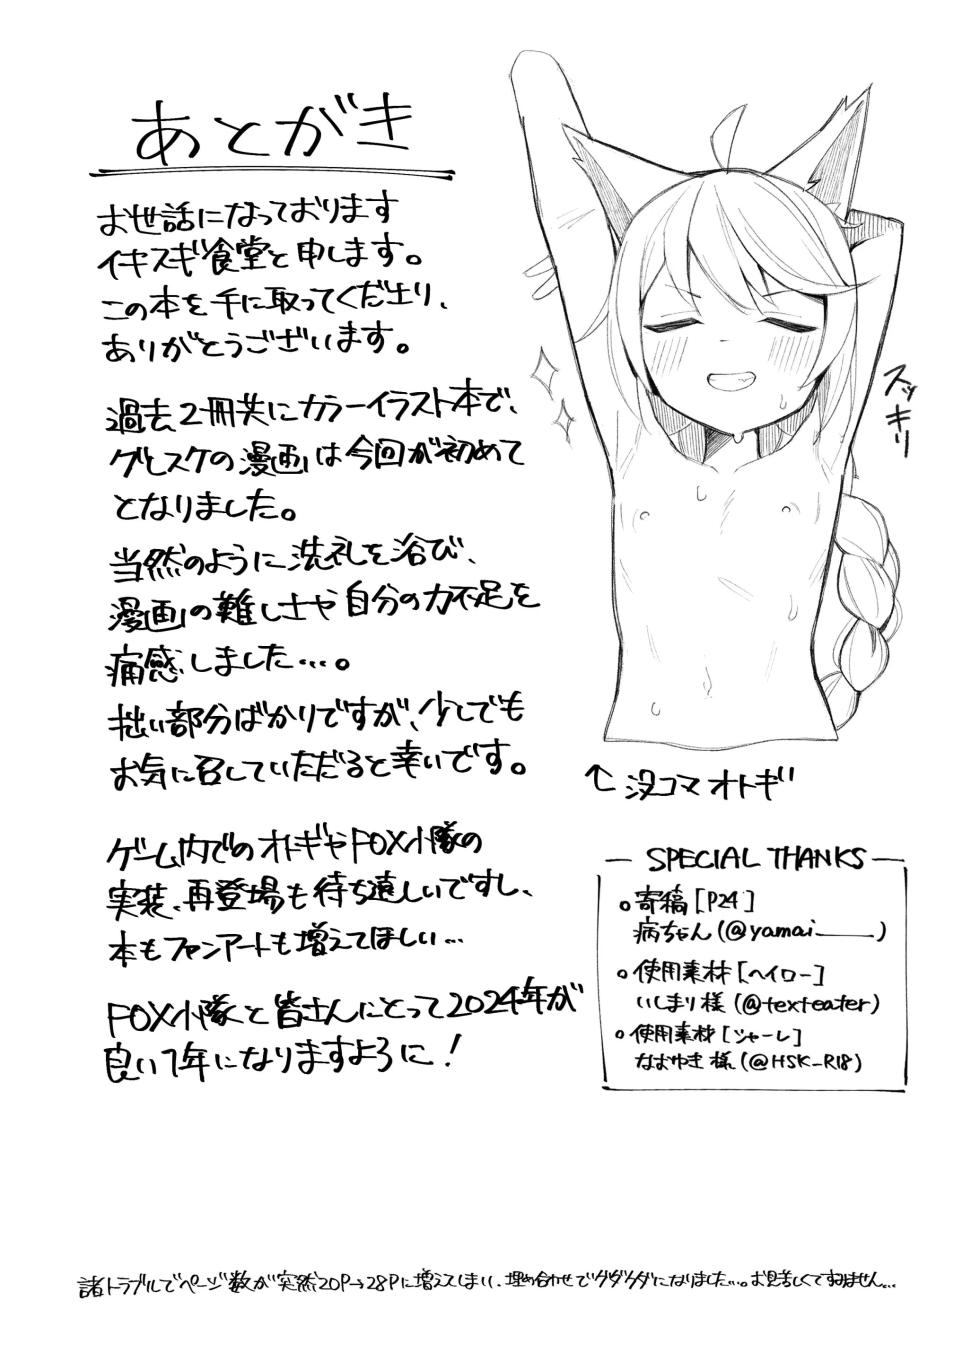 あとがき
お世話になっております
イキスギ食堂と申します。
この本を手に取ってくださり、
ありがとうございます。
過去2冊共にカラーイラスト本で、
グレスケの漫画は今回が初めて
となりました。
当然のように洗礼を浴び、
漫画の難しさや自分の力不足を
痛感しました…。
拙い部分ばかりですが、少しでも
お気に召していただると幸いです。
ゲーム内でのオトギやFOX小隊の
実装、再登場も待ち遠しいですし、
本もファンアートも増えてほしい…
FOX小隊と皆さんにとって2024年が
良い1年になりますように!
スッキリ
↑没コマオトギ
SPECIAL THANKS
寄稿[P24]
病ちゃん(@yamai____)
使用素材[ヘイロー]
いしまり様(@texteater)
使用素材[シャーレ]
なおゆき様(@HSK_R18)
諸トラブルでページ数が突然20P→28Pに増えてしまい、埋め合わせでグダグダになりました…。お見苦しくてすみません…